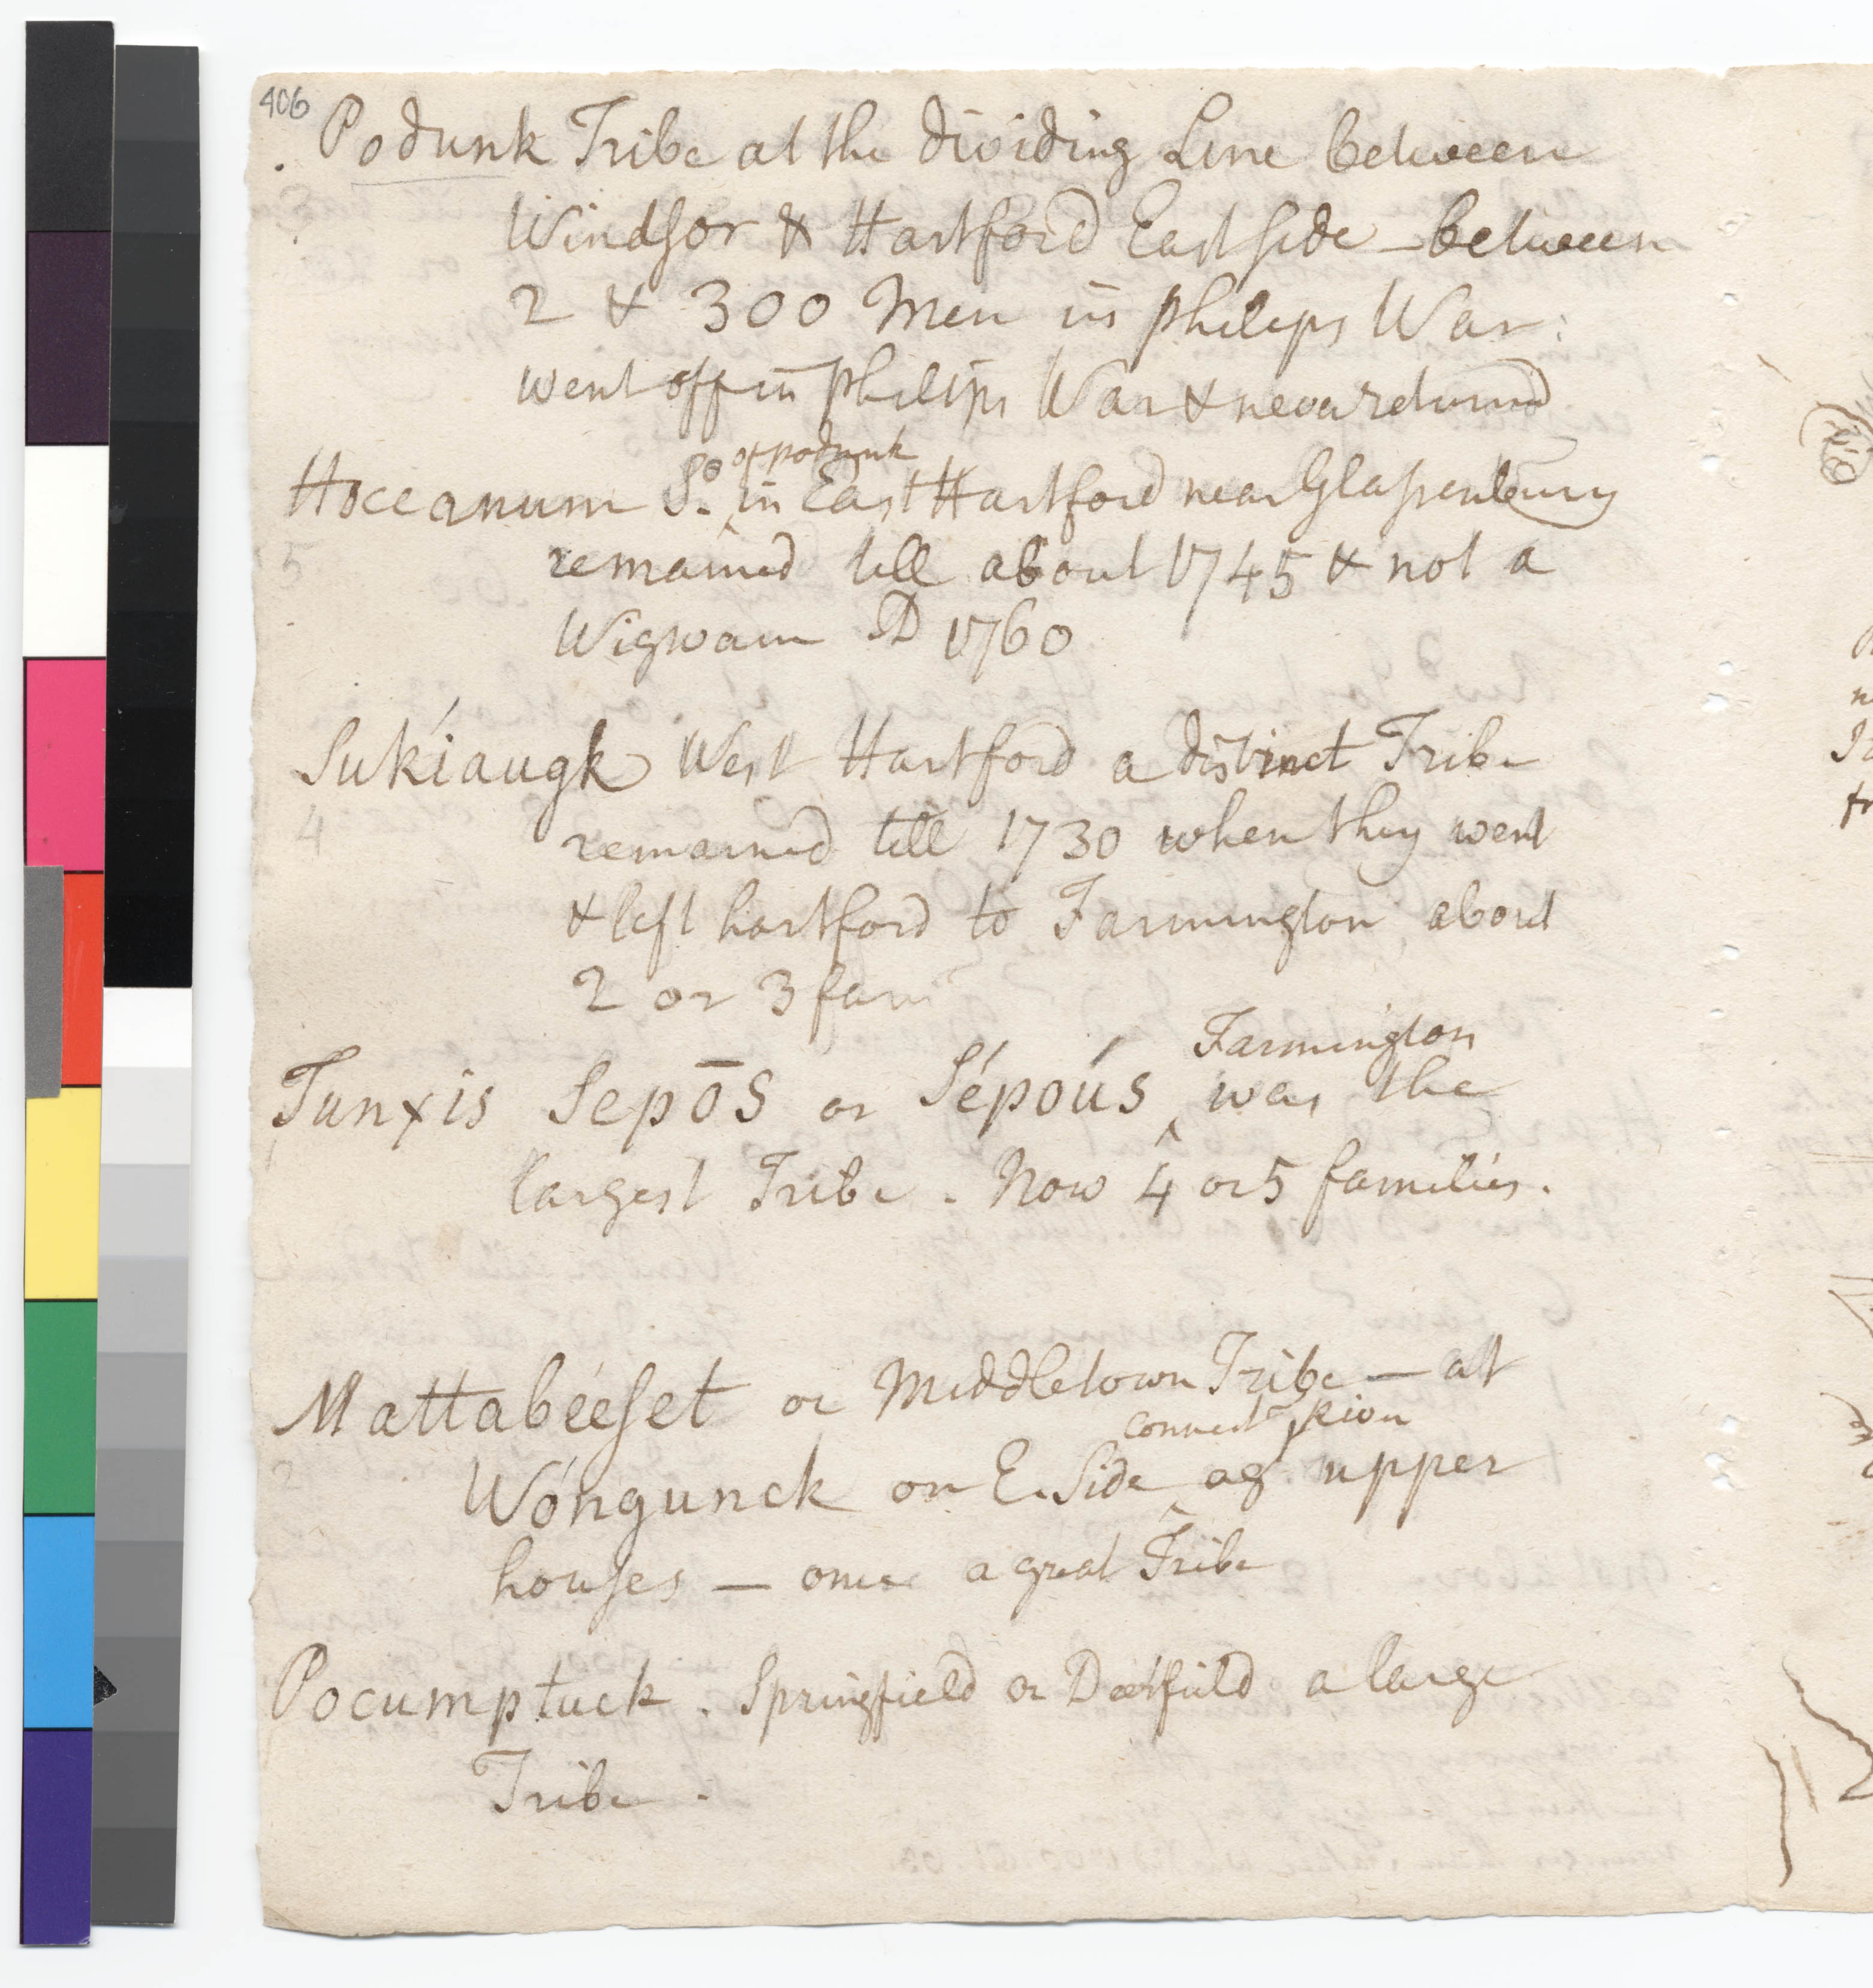 406
Podunk Tribe at the dividing Line between
Windsor & Hartford East side – between
2 & 300 Men in Philips War:
went off in Philips War & never returnd
So of podunk
Hoccanum S. in East Hartford near Glassenbury
remained till about 1745 & not a
Wigwam AD 1760
5
Sukíaugk West Hartford a distinct Tribe
remained till 1730 when they went
4
& left hartford to Farmington about
2 or 3 fam
Farmington
Tunxis Sepōs or Sépoús ‸ was the
largest Tribe. Now 4 or 5 families.
Mattabéeset or Middletown Tribe — at
Connect River
2
Wóngunck on E. Side ‸ ag. upper
houses — once a great Tribe
Pocumptuck. Springfield or Deerfield a large
Tribe.